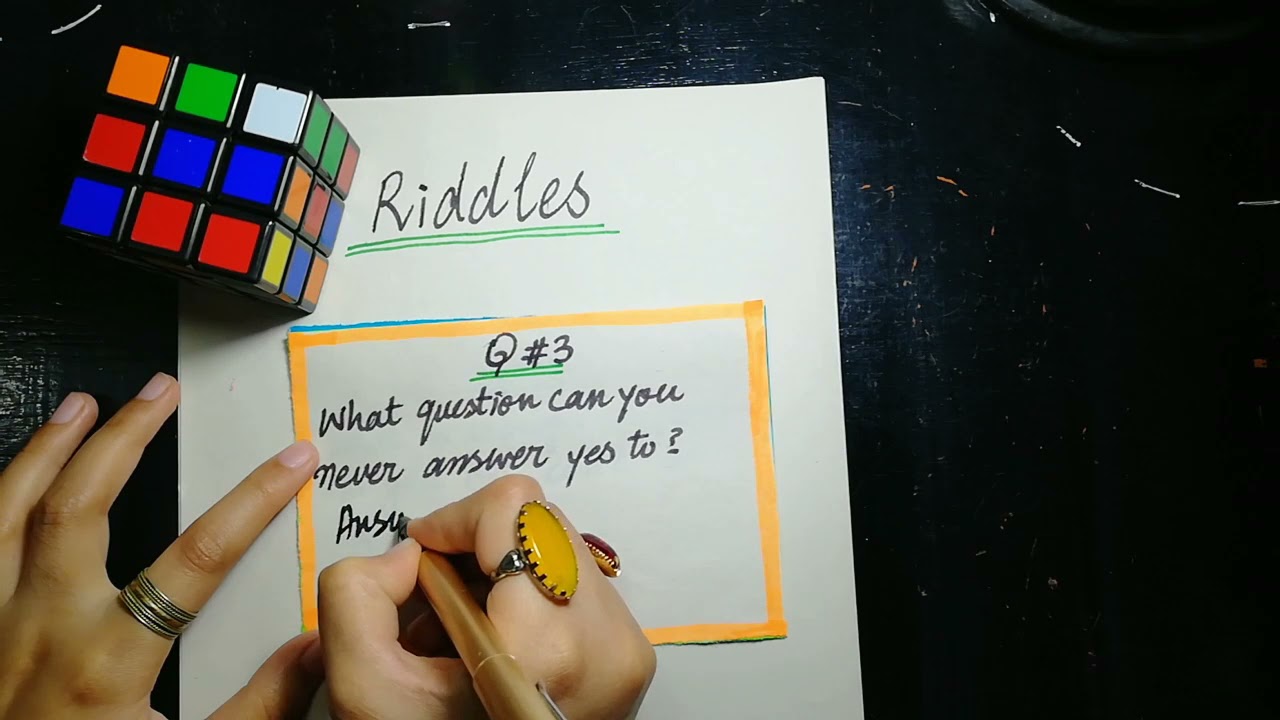 Riddles
Q #3
What question can you
never answer yes to?
Answ